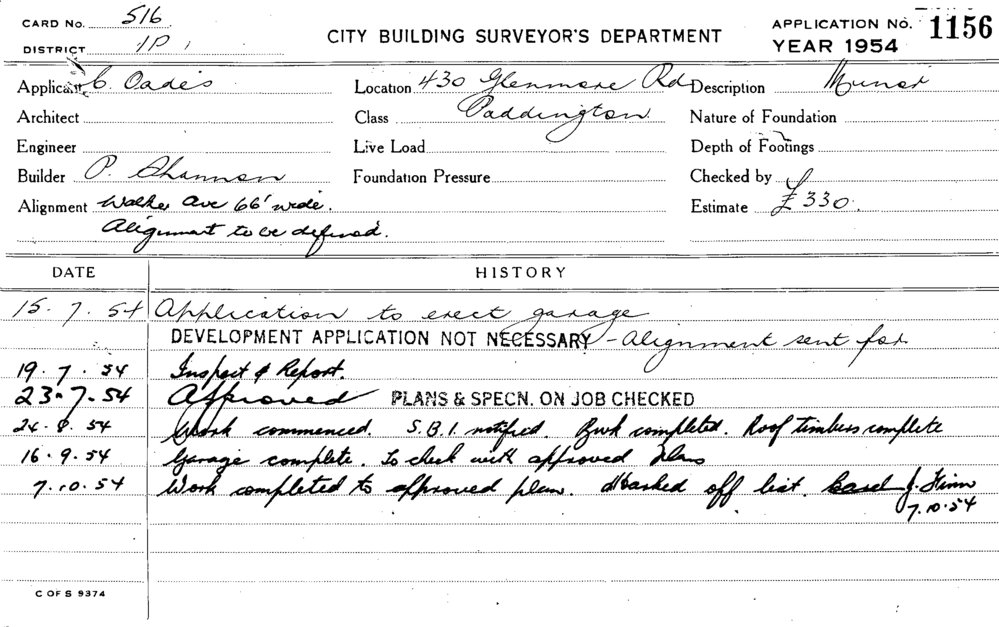 CARD NO. 516
DISTRICT 1P
CITY BUILDING SURVEYOR'S DEPARTMENT
APPLICATION NO. 1156
YEAR 1954
Applicant C. Oades
Location 430 Glenmore Rd
Description Minor
Architect
Class Paddington
Nature of Foundation
Engineer
Live Load
Depth of Footings
Builder P. Shannon
Foundation Pressure
Checked by
Alignment Walker Ave 66' wide.
Estimate £330.
Alignment to be defined.
DATE HISTORY
15.7.54 Application to erect garage
DEVELOPMENT APPLICATION NOT NECESSARY - Alignment sent for
19.7.54 Inspect & Report.
23.7.54 Approved PLANS & SPECN. ON JOB CHECKED
24.8.54 Work commenced. S.B.I. notified. Bwk completed. Roof timbers complete
16.9.54 Garage complete. To check with approved Plan
7.10.54 Work completed to approved plan. Marked off list. J. Finn
7.10.54
C OF S 9374